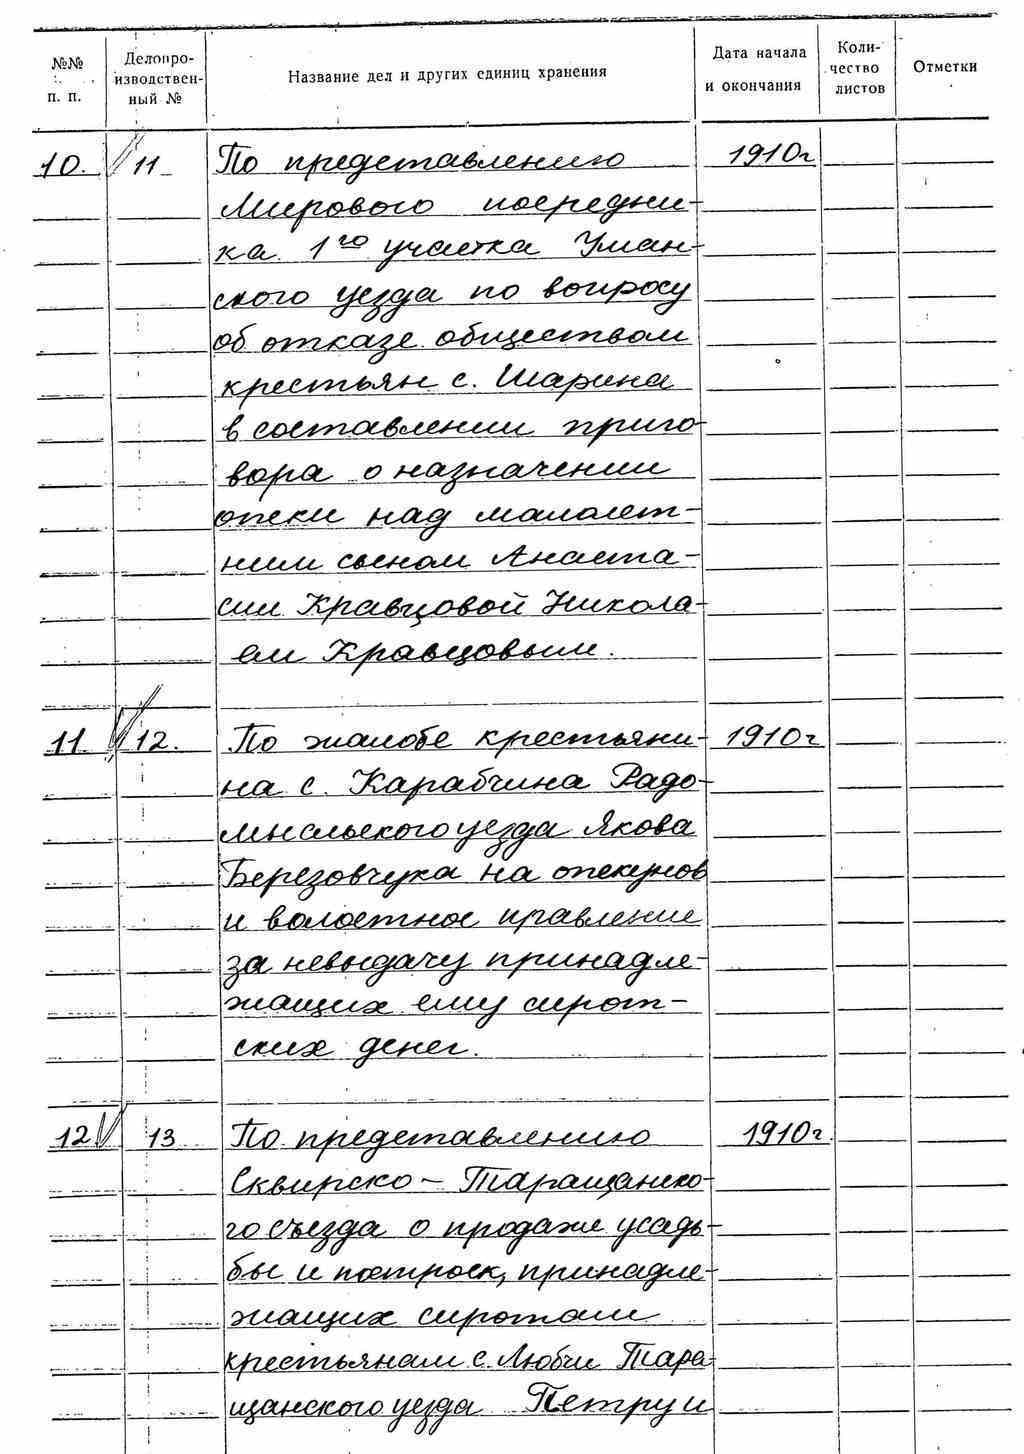 №№ п. п.
Делопро-
изводствен-
ный №
Название дел и других единиц хранения
Дата начала
и окончания
Коли-
чество
листов
Отметки
10. 11 По представлению 1910г
Мирового посредни-
ка 1го участка Уман-
ского уезда по вопросу
об отказе обществом
крестьян с. Шарина
в составлении приго-
вора о назначении
опеки над малолет-
ним сыном Анаста-
сии Кравцовой Никола-
ем Кравцовым.
11. 12. По жалобе крестьяни- 1910г
на с. Карабчина Радо-
мысльского уезда Якова
Березовчука на опекунов
и волостное правление
за невыдачу принадле-
жащих ему сирот-
ских денег.
12 13 По представлению 1910г.
Сквирско-Таращанско-
го съезда о продаже усадь-
бы и построек, принадле-
жащих сиротам
крестьянам с. Любчи Тара-
щанского уезда Петру и